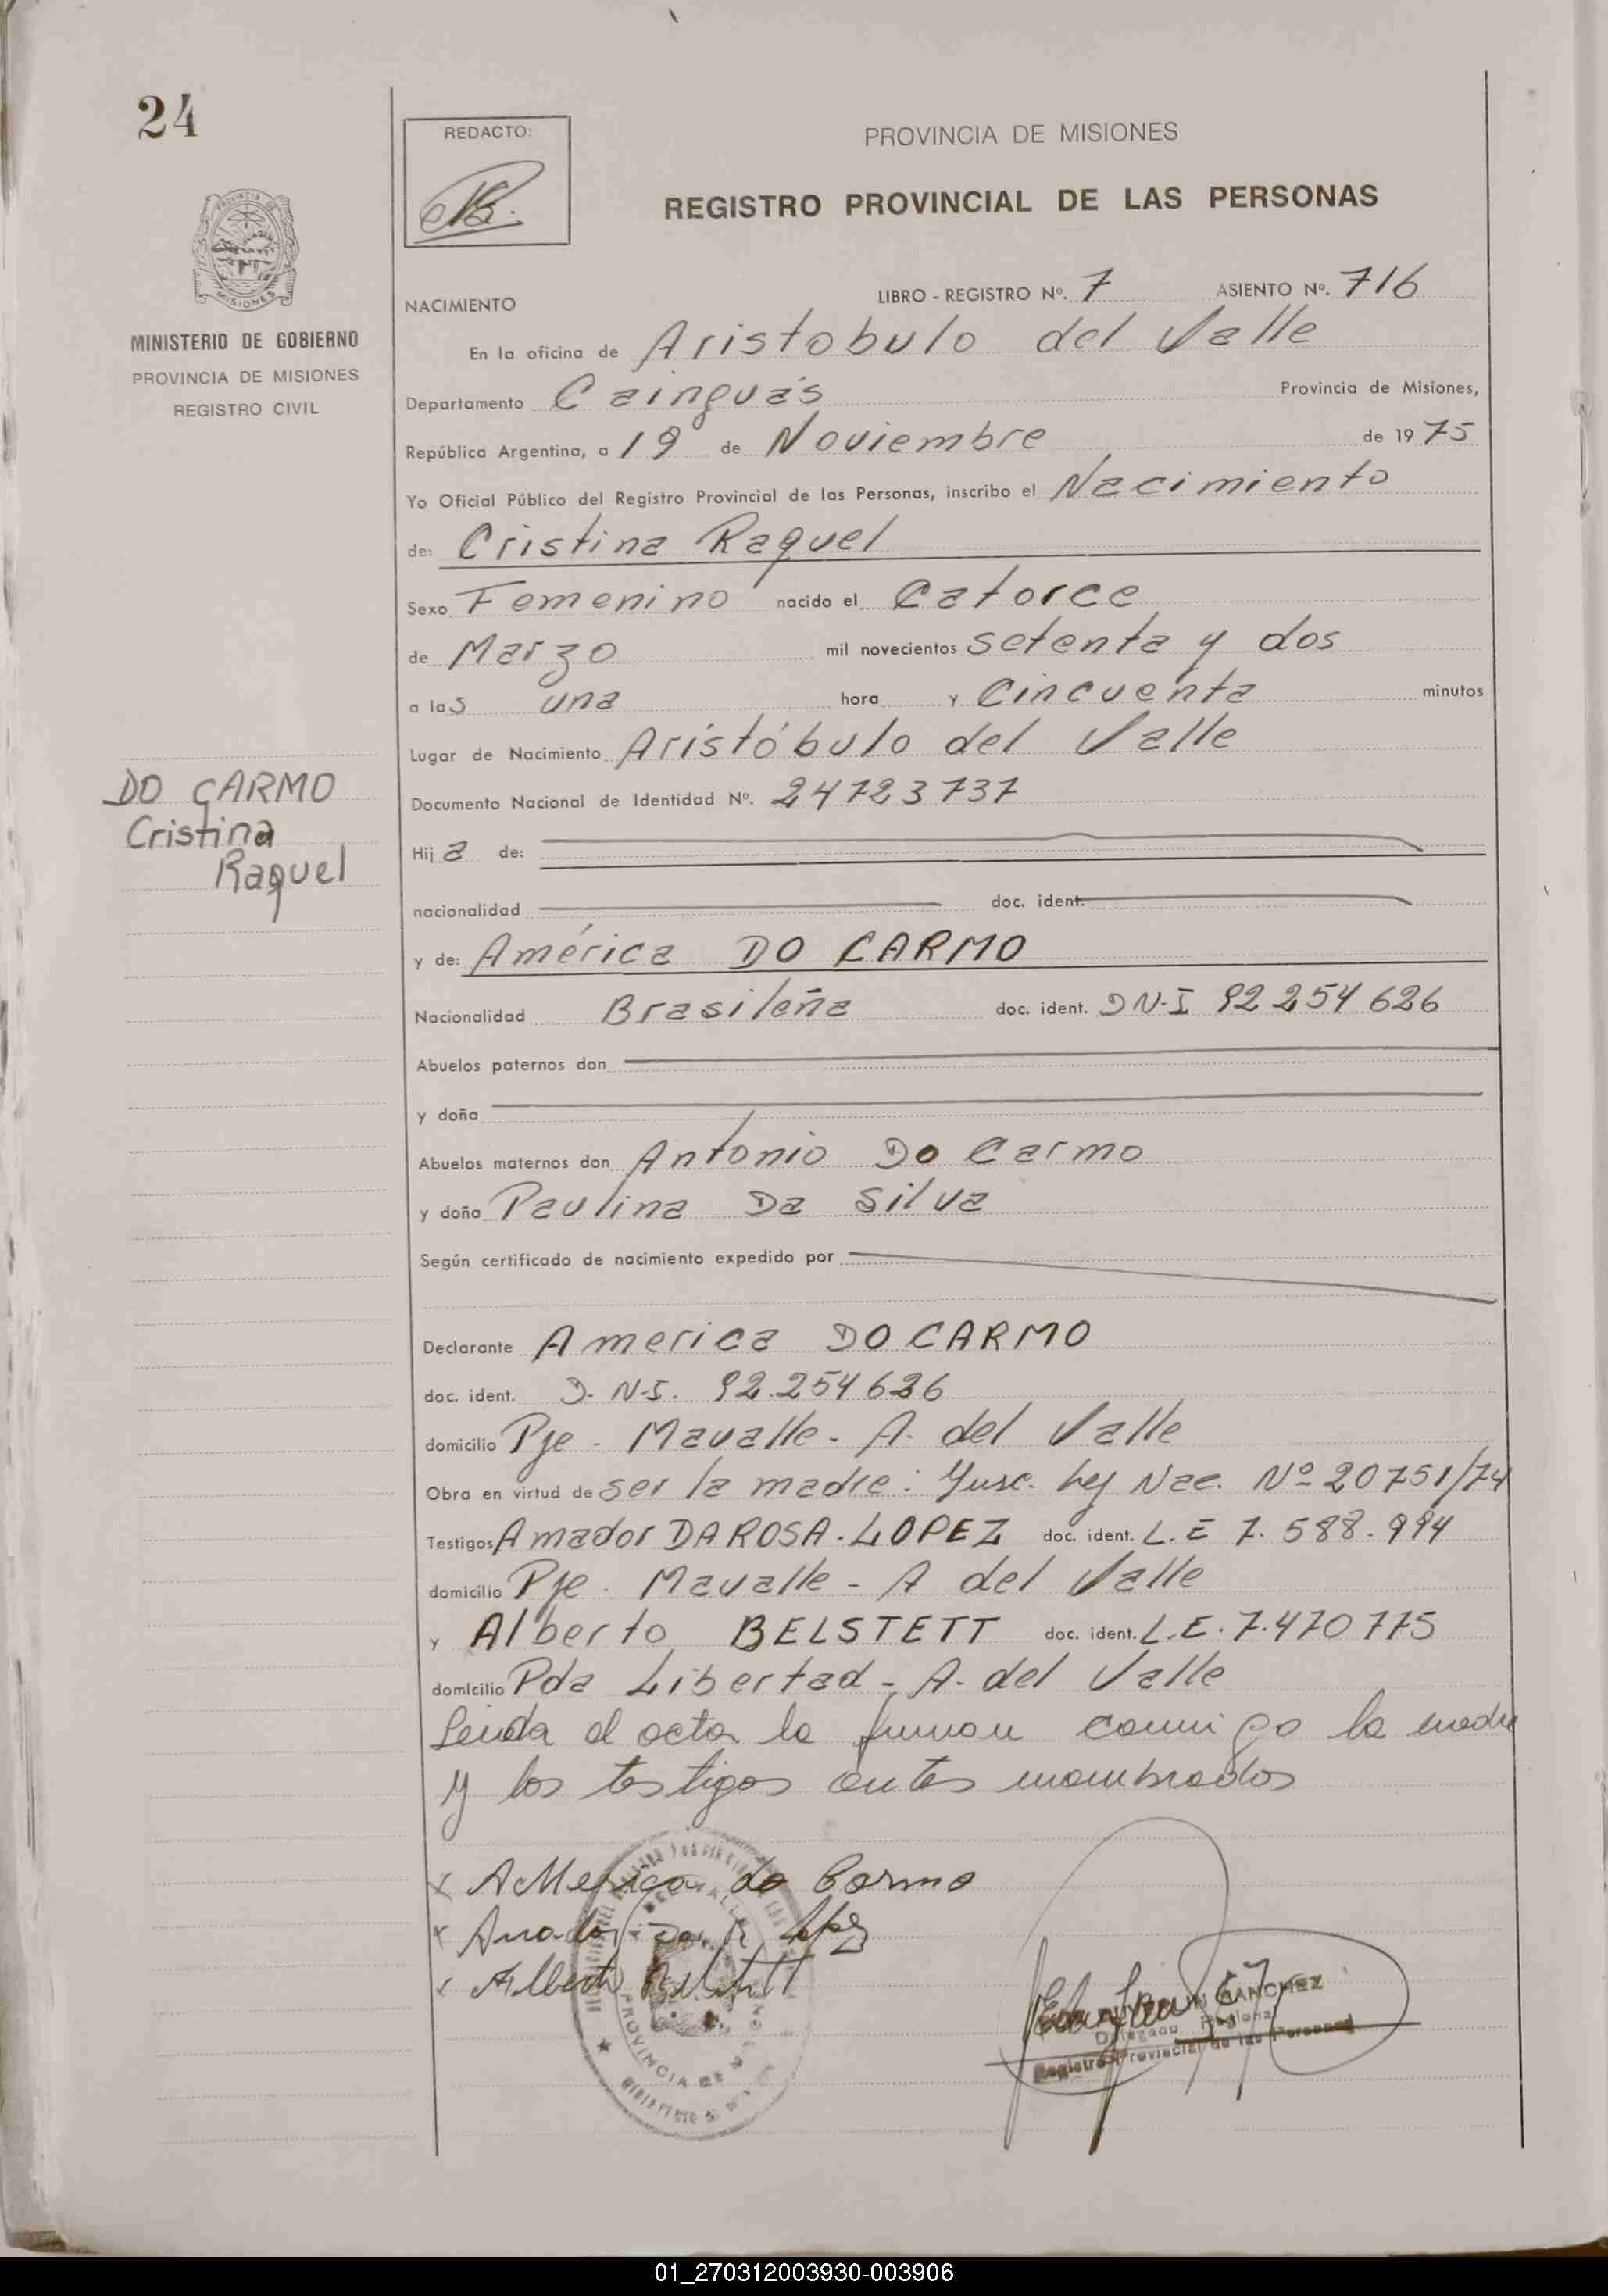 24
REDACTO:
PROVINCIA DE MISIONES
REGISTRO PROVINCIAL DE LAS PERSONAS
MISIONES
MINISTERIO DE GOBIERNO
PROVINCIA DE MISIONES
REGISTRO CIVIL
NACIMIENTO LIBRO - REGISTRO Nº. 7 ASIENTO Nº. 716
En la oficina de Aristobulo del Valle
Departamento Cainguás Provincia de Misiones,
República Argentina, a 19 de Noviembre de 1975
Yo Oficial Público del Registro Provincial de las Personas, inscribo el Nacimiento
de: Cristina Raquel
Sexo Femenino nacido el Catorce
de Marzo mil novecientos setenta y dos
a las una hora y Cincuenta minutos
Lugar de Nacimiento Aristóbulo del Valle
DO CARMO
Cristina
Raquel
Documento Nacional de Identidad Nº. 24723737
Hija de:
nacionalidad doc. ident.
y de: América DO CARMO
Nacionalidad Brasileña doc. ident. DN-I 92 254 626
Abuelos paternos don
y doña
Abuelos maternos don Antonio Do Carmo
y doña Paulina Da Silva
Según certificado de nacimiento expedido por
Declarante America DO CARMO
doc. ident. D. N-I. 92.254 626
domicilio Pje - Mavalle - A. del Valle
Obra en virtud de ser la madre: Ynsc. Ley Nac. Nº 20751/74
Testigos Amador DA ROSA - LOPEZ doc. ident. L.E 7. 588. 994
domicilio Pje - Mavalle - A del Valle
y Alberto BELSTETT doc. ident. L.E. 7.470 775
domicilio Pda Libertad - A. del Valle
Leida el acta la firman conmigo la madre
y los testigos antes nombrados
x AMerica do Carmo
x Amador Da R Lopez
x Alberto Belstett
SANCHEZ
Delegado Regional
Registro Provincial de las Personas
PROVINCIA DE
01_270312003930-003906